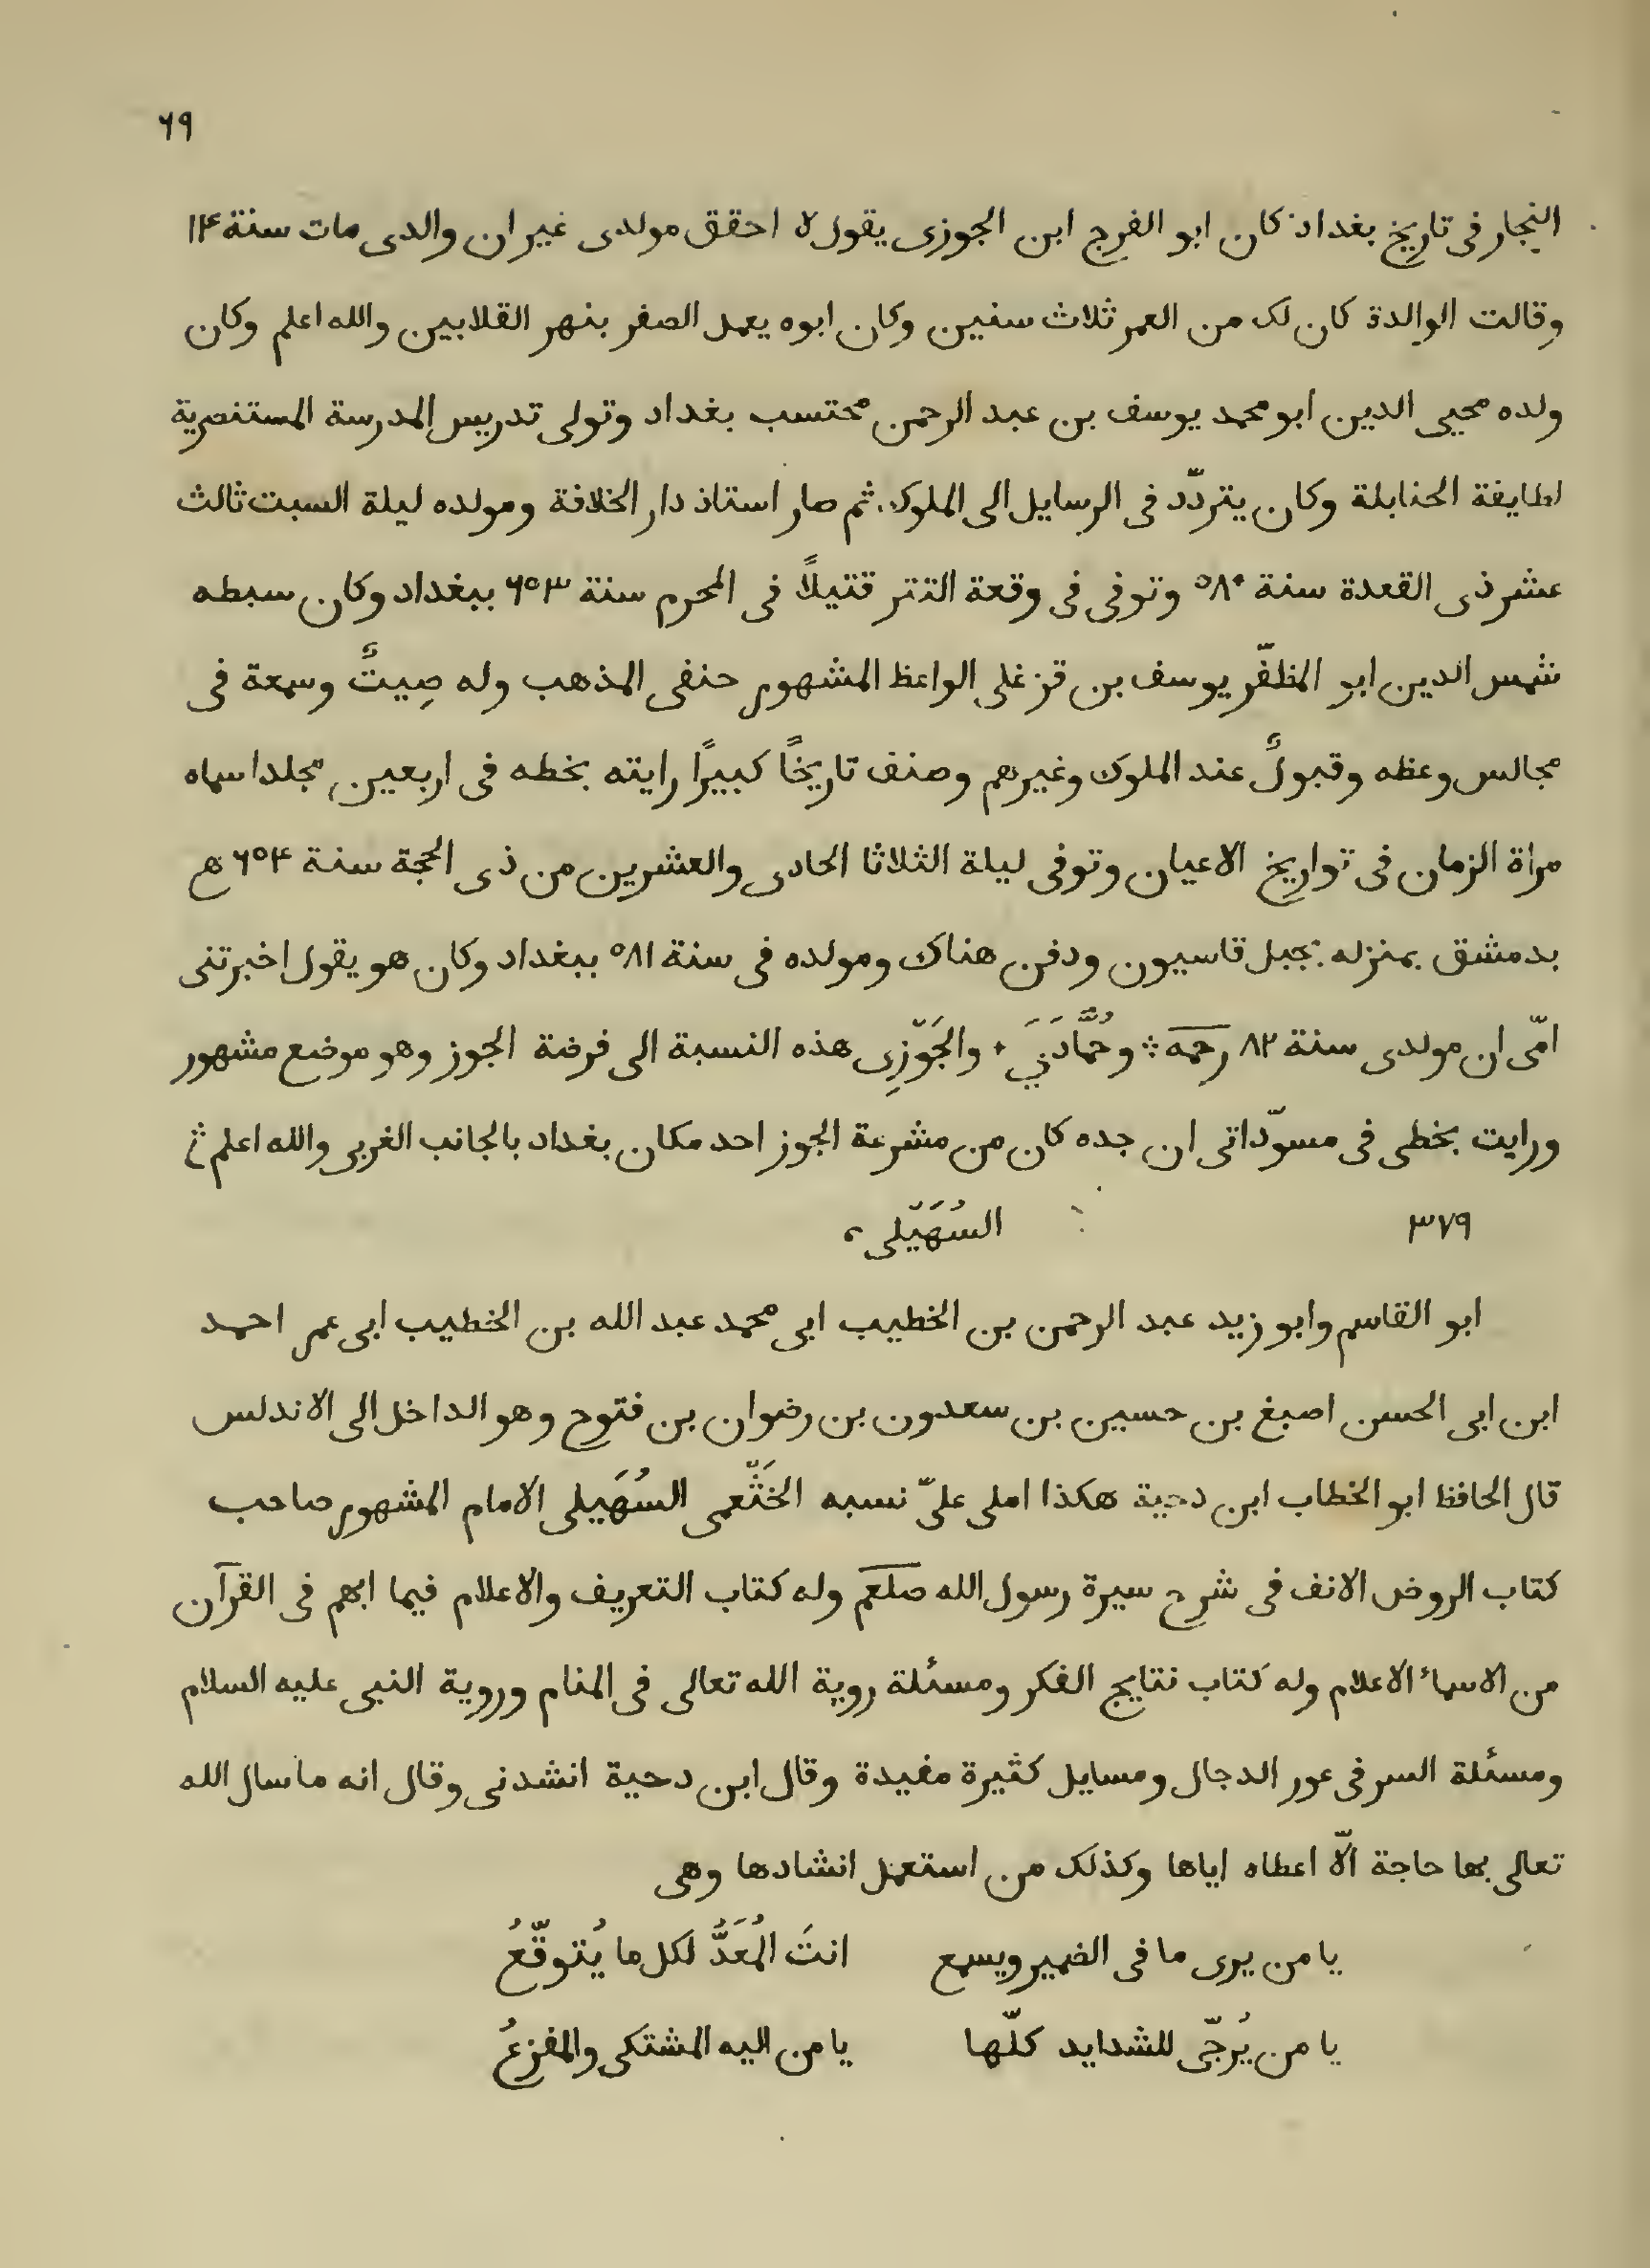 ٦٩
النجار فى تاريخ بغداد كان ابو الفرج ابن الجوزى يقول لا احقق مولدى غير ان والدى مات سنة ١٤
وقالت الوالدة كان لك من العمر ثلاث سنين وكان ابوه يعمل الصفر بنهر القلابين والله اعلم وكان
ولده محيى الدين ابو محمد يوسف بن عبد الرحمن محتسب بغداد وتولى تدريس المدرسة المستنصرية
لطايفة الحنابلة وكان يتردّد فى الرسايل الى الملوك ثم صار استاذ دار الخلافة ومولده ليلة السبت ثالث
عشر ذى القعدة سنة ٥٨٠ وتوفى فى وقعة التتر قتيلاً فى المحرم سنة ٦٥٣ ببغداد وكان سبطه
شمس الدين ابو المظفّر يوسف بن قزغلى الواعظ المشهور حنفى المذهب وله صِيتٌ وسمعة فى
مجالس وعظه وقبولٌ عند الملوك وغيرهم وصنف تاريخًا كبيرًا رايته بخطه فى اربعين مجلدا سماه
مراة الزمان فى تواريخ الاعيان وتوفى ليلة الثلاثا الحادى والعشرين من ذى الحجة سنة ٦٥٤ ه‍
بدمشق بمنزله بجبل قاسيون ودفن هناك ومولده فى سنة ٥٨١ ببغداد وكان هو يقول اخبرتنى
امّى ان مولدى سنة ٨٢ رحمه وحُمَّادَيَ والجَوْزِى هذه النسبة الى فرضة الجوز وهو موضع مشهور
ورايت بخطى فى مسوّداتى ان جده كان من مشرعة الجوز احد مكان بغداد بالجانب الغربى والله اعلم
٣٧٩ السُهَيْلى
ابو القاسم وابو زيد عبد الرحمن بن الخطيب ابى محمد عبد الله بن الخطيب ابى عمر احمد
ابن ابى الحسن اصبغ بن حسين بن سعدون بن رضوان بن فتوح وهو الداخل الى الاندلس
قال الحافظ ابو الخطاب ابن دحية هكذا املى علىّ نسبه الخَثْعمى السُهَيلى الامام المشهور صاحب
كتاب الروض الانف فى شرح سيرة رسول الله صلعم وله كتاب التعريف والاعلام فيما ابهم فى القرآن
من الاسماء الاعلام وله كتاب نتايج الفكر ومسئلة روية الله تعالى فى المنام وروية النبى عليه السلام
ومسئلة السر فى عور الدجال ومسايل كثيرة مفيدة وقال ابن دحية انشدنى وقال انه ما سال الله
تعالى بها حاجة الّا اعطاه اياها وكذلك من استعمل انشادها وهى
يا من يرى ما فى الضمير ويسمع انتَ المُعَدُّ لكل ما يُتوقّعُ
يا من يُرجّى للشدايد كلّها يا من اليه المشتكى والمفزعُ